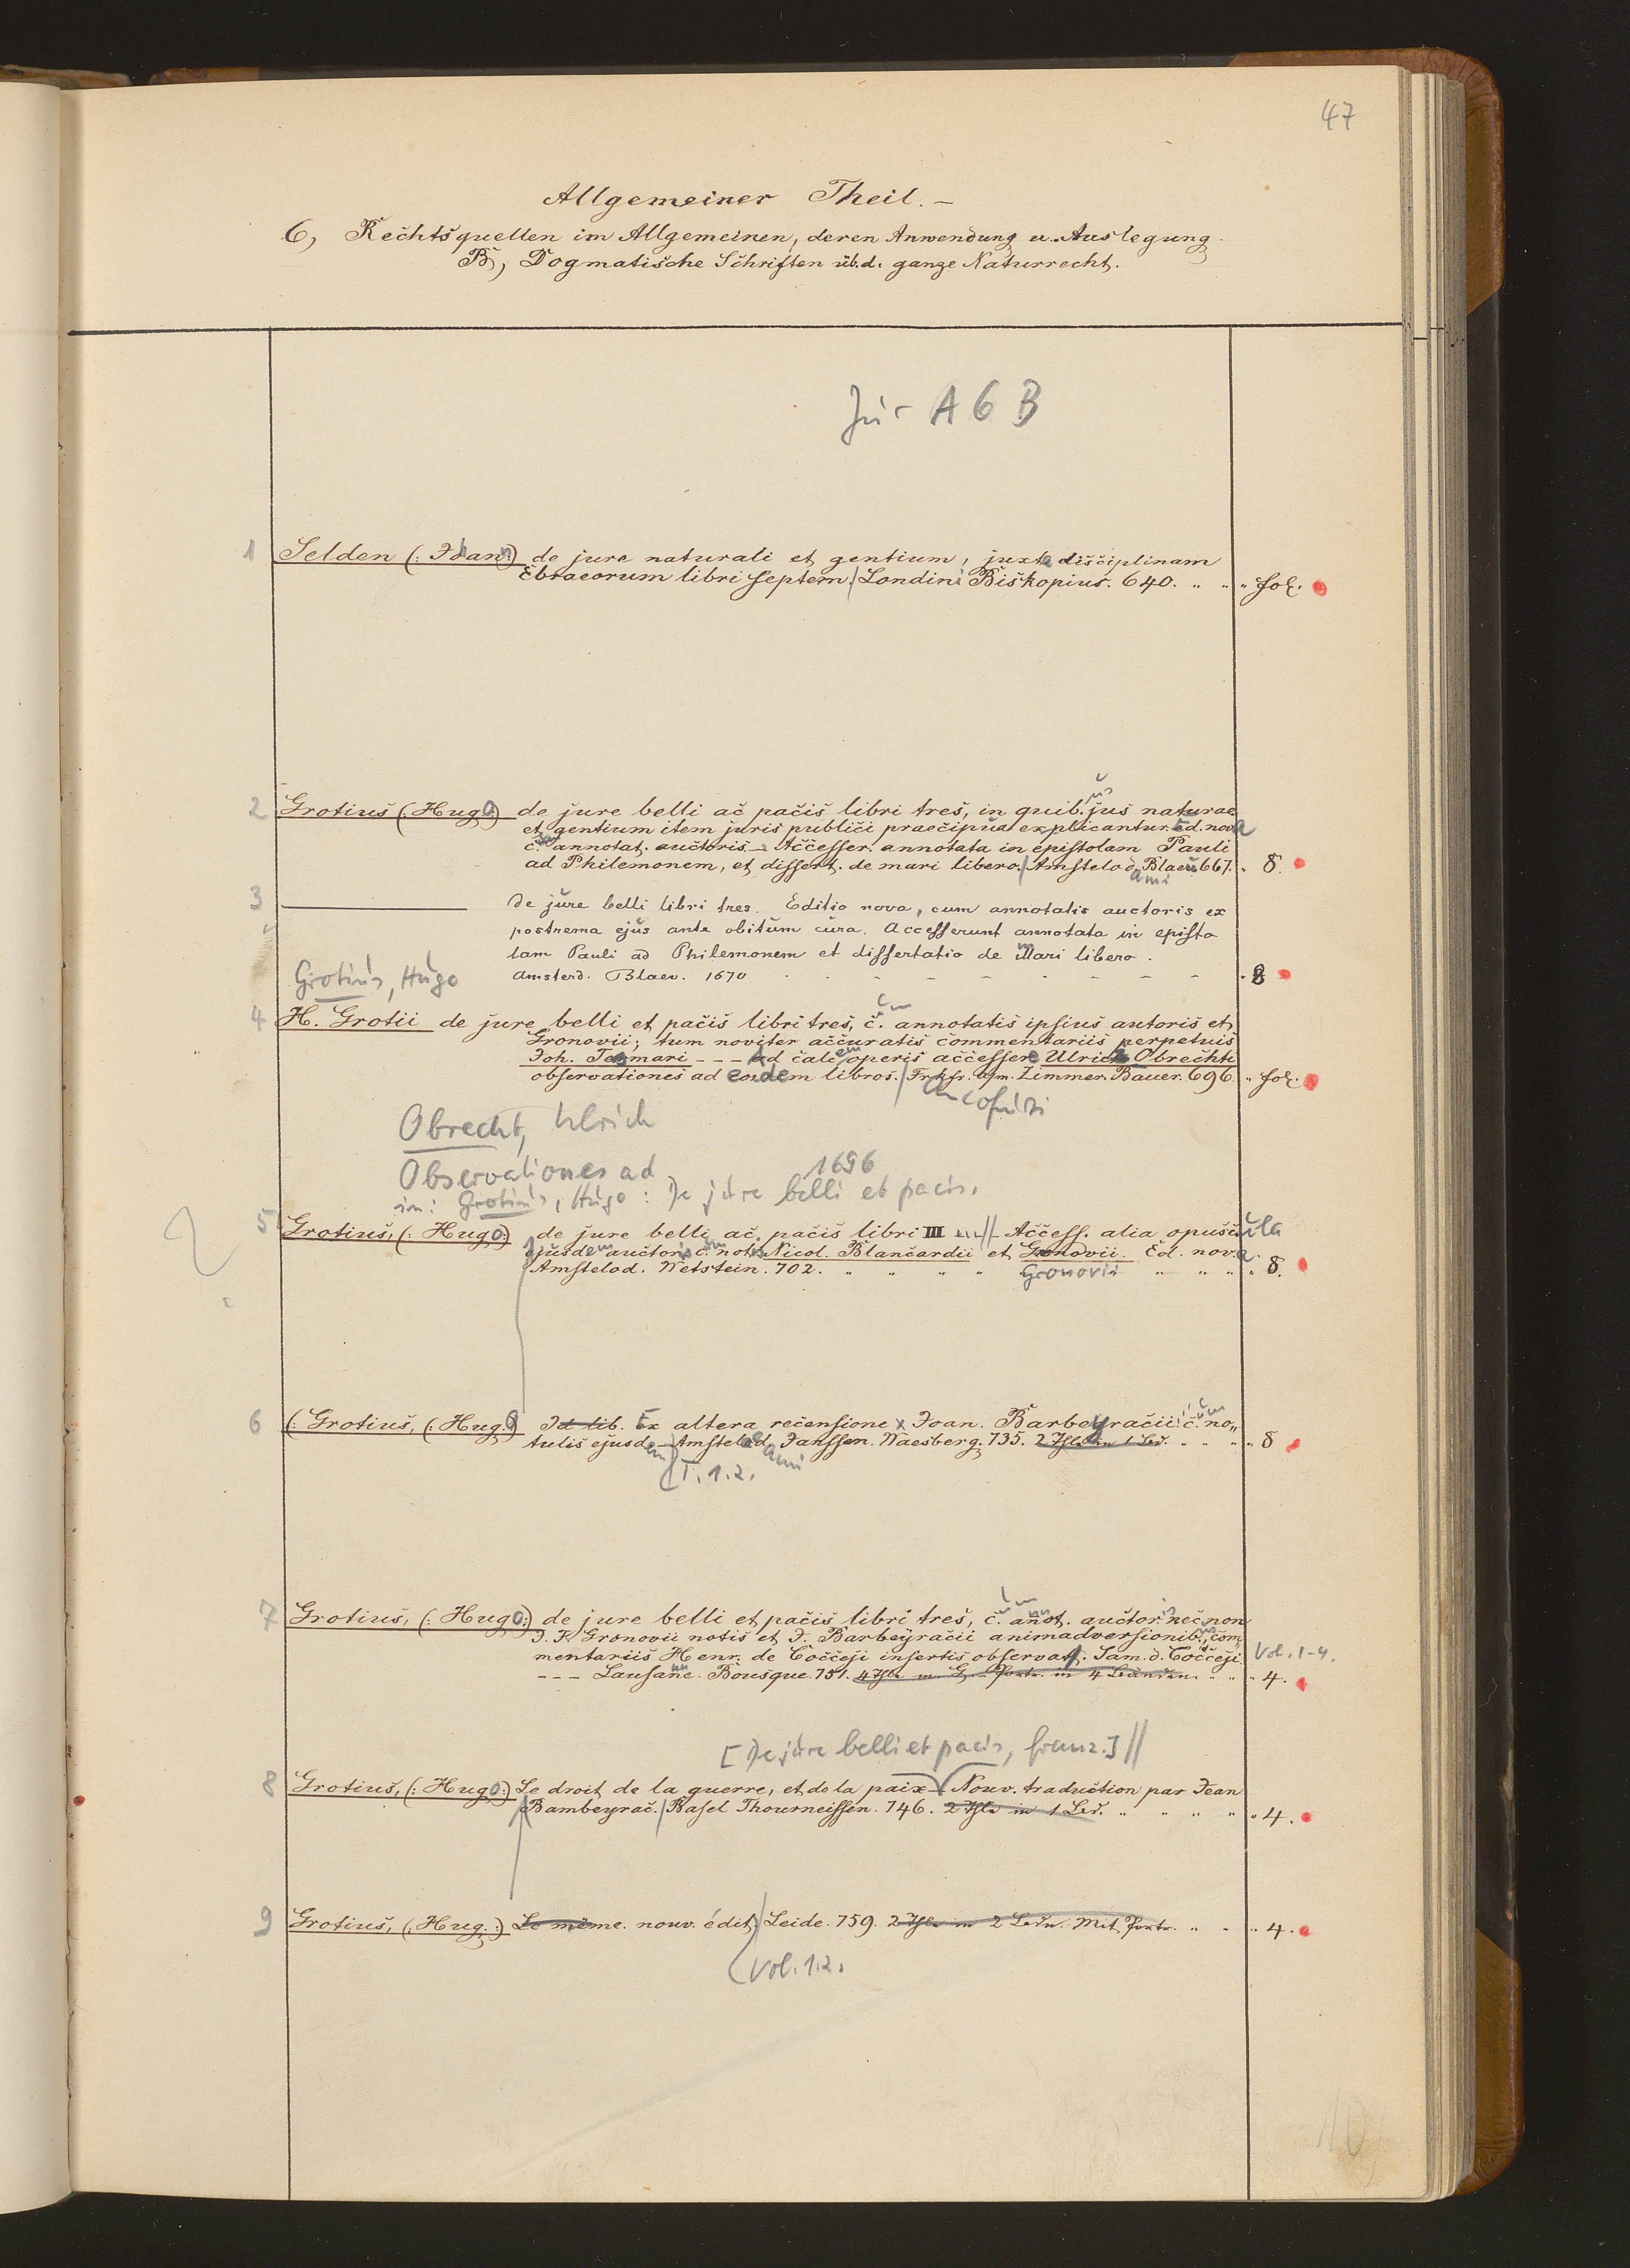 47
Allgemeiner Theil. –
6, Rechtsquellen im Allgemeinen, deren Anwendung u. Auslegung.
B, Dogmatische Schriften üb. d. ganze Naturrecht.
Jur A 6 B
1 Selden (: Johann:) de jure naturali et gentium, juxta disciplinam
Ebraeorum libri septem./ Londini Biskopius. 640. " " " fol.
2 Grotius (Hugo) de jure belli ac pacis libri tres, in quib.us jus naturae
et gentium item juris publici praecipua explicantur. Ed. nova
c.um annotat. auctoris – Accesser. annotata in epistolam Pauli
ad Philemonem, et dissert. de mari libero./ Amstelodami Blaeu 667. " 8.
3 ——— De jure belli libri tres. Editio nova, cum annotatis auctoris ex
postrema ejus ante obitum cura. Accesserunt annotata in episto
lam Pauli ad Philemonem et dissertatio de Mari libero.
Grotius, Hugo Amsterd. Blaev. 1670 - - - - - 8
4 H. Grotii de jure belli et pacis libri tres, c.um annotatis ipsius autoris et
Gronovii; tum noviter accuratis commentariis perpetuis
Joh. Tesmari - - - Ad calcem operis accessere Ulrici Obrechti
observationes ad eosdem libros./ Frkfr. a/m. Zimmer. Bauer. 696. " fol.
Francofurti
Obrecht, Ulrich
Observationes ad 1696
in: Grotius, Hugo: De jure belli et pacis.
5 Grotius, (: Hugo:) de jure belli ac pacis libri III // Access. alia opuscula
ejusdem auctoris c.um notis Nicol. Blancardii et Gronovii. Ed. nova.
Amstelod. Wetstein. 702. " " " " Gronovii " " " " 8.
6 (: Grotius, (: Hugo) Id lib. Ex altera recensione Joan. Barbeyracii c.um no„
tulis ejusdem Amstelodami Janssen. Waesberg. 735. 2 Thle in 1 Bd. " " " " 8
T. 1.2.
7 Grotius, (: Hugo:) de jure belli et pacis libri tres, c.um annot. auctoris nec non
J. F. Gronovii notis et J. Barbeyracii animadversionib.us, com
mentariis Henr. de Cocceji insertis observat. Sam. d. Cocceji Vol. 1-4.
- - - Lausanne. Bousque. 751. 4 Thle m. G. Portr. in 4 Bänden. " " " 4.
[De jure belli et pacis, franz.] //
8 Grotius, (: Hugo:) Le droit de la guerre, et de la paix – Nouv. traduction par Jean
Bambeyrac./ Basel Thourneissen. 746. 2 Thle in 1 Bd. " " " " " 4.
9 Grotius, (: Hug.:) Le même. nouv. édit./ Leide. 759. 2 Thle in 2 Bdn. Mit Portr. " " " 4.
Vol. 1.2.